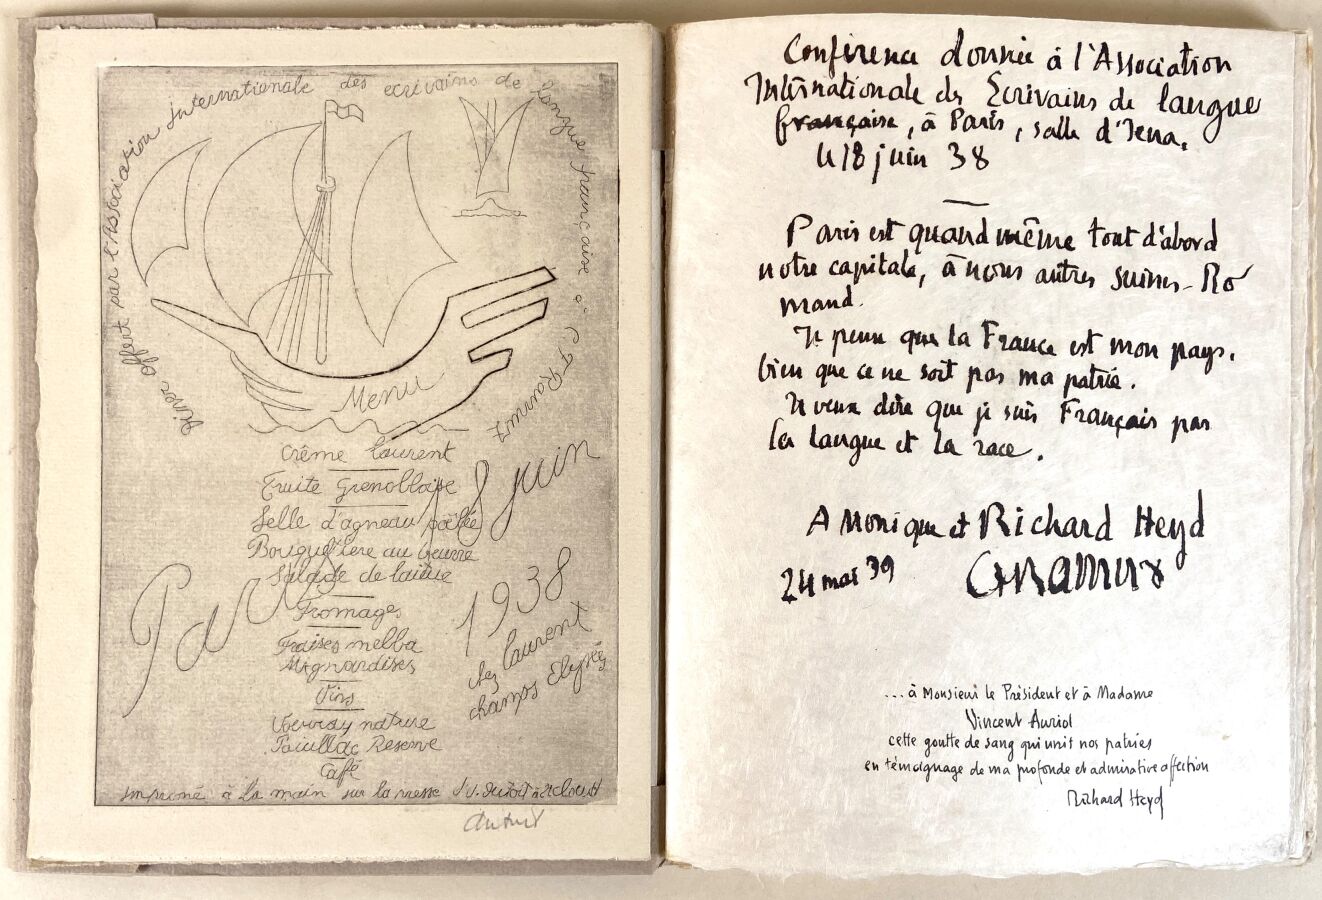 Dîner offert par l'Association internationale des écrivains de langue française à C F Ramuz
Menu
Crême laurent
Truite Grenobloise
Selle d'agneau poêlée
Bouquetière au beurre
Salade de laitue
Fromages
Fraises melba
Mignardises
Vins
Vouvray nature
Pauillac Reserve
Café
Paris
18 juin
1938
chez laurent
champs Elysées
imprimé à la main sur la presse
Conférence donnée à l'Association
Internationale des Ecrivains de langue
française, à Paris, salle d'Iena,
le 18 juin 38
Paris est quand même tout d'abord
notre capitale, à nous autres suisses-Ro
mand.
Je pense que la France est mon pays,
bien que ce ne soit pas ma patrie.
Je veux dire que je suis Français par
la langue et la race.
A Monique et Richard Heyd
24 mai 39
CFRamuz
...à Monsieur le Président et à Madame
Vincent Auriol
cette goutte de sang qui unit nos patries
en témoignage de ma profonde et admirative affection
Richard Heyd